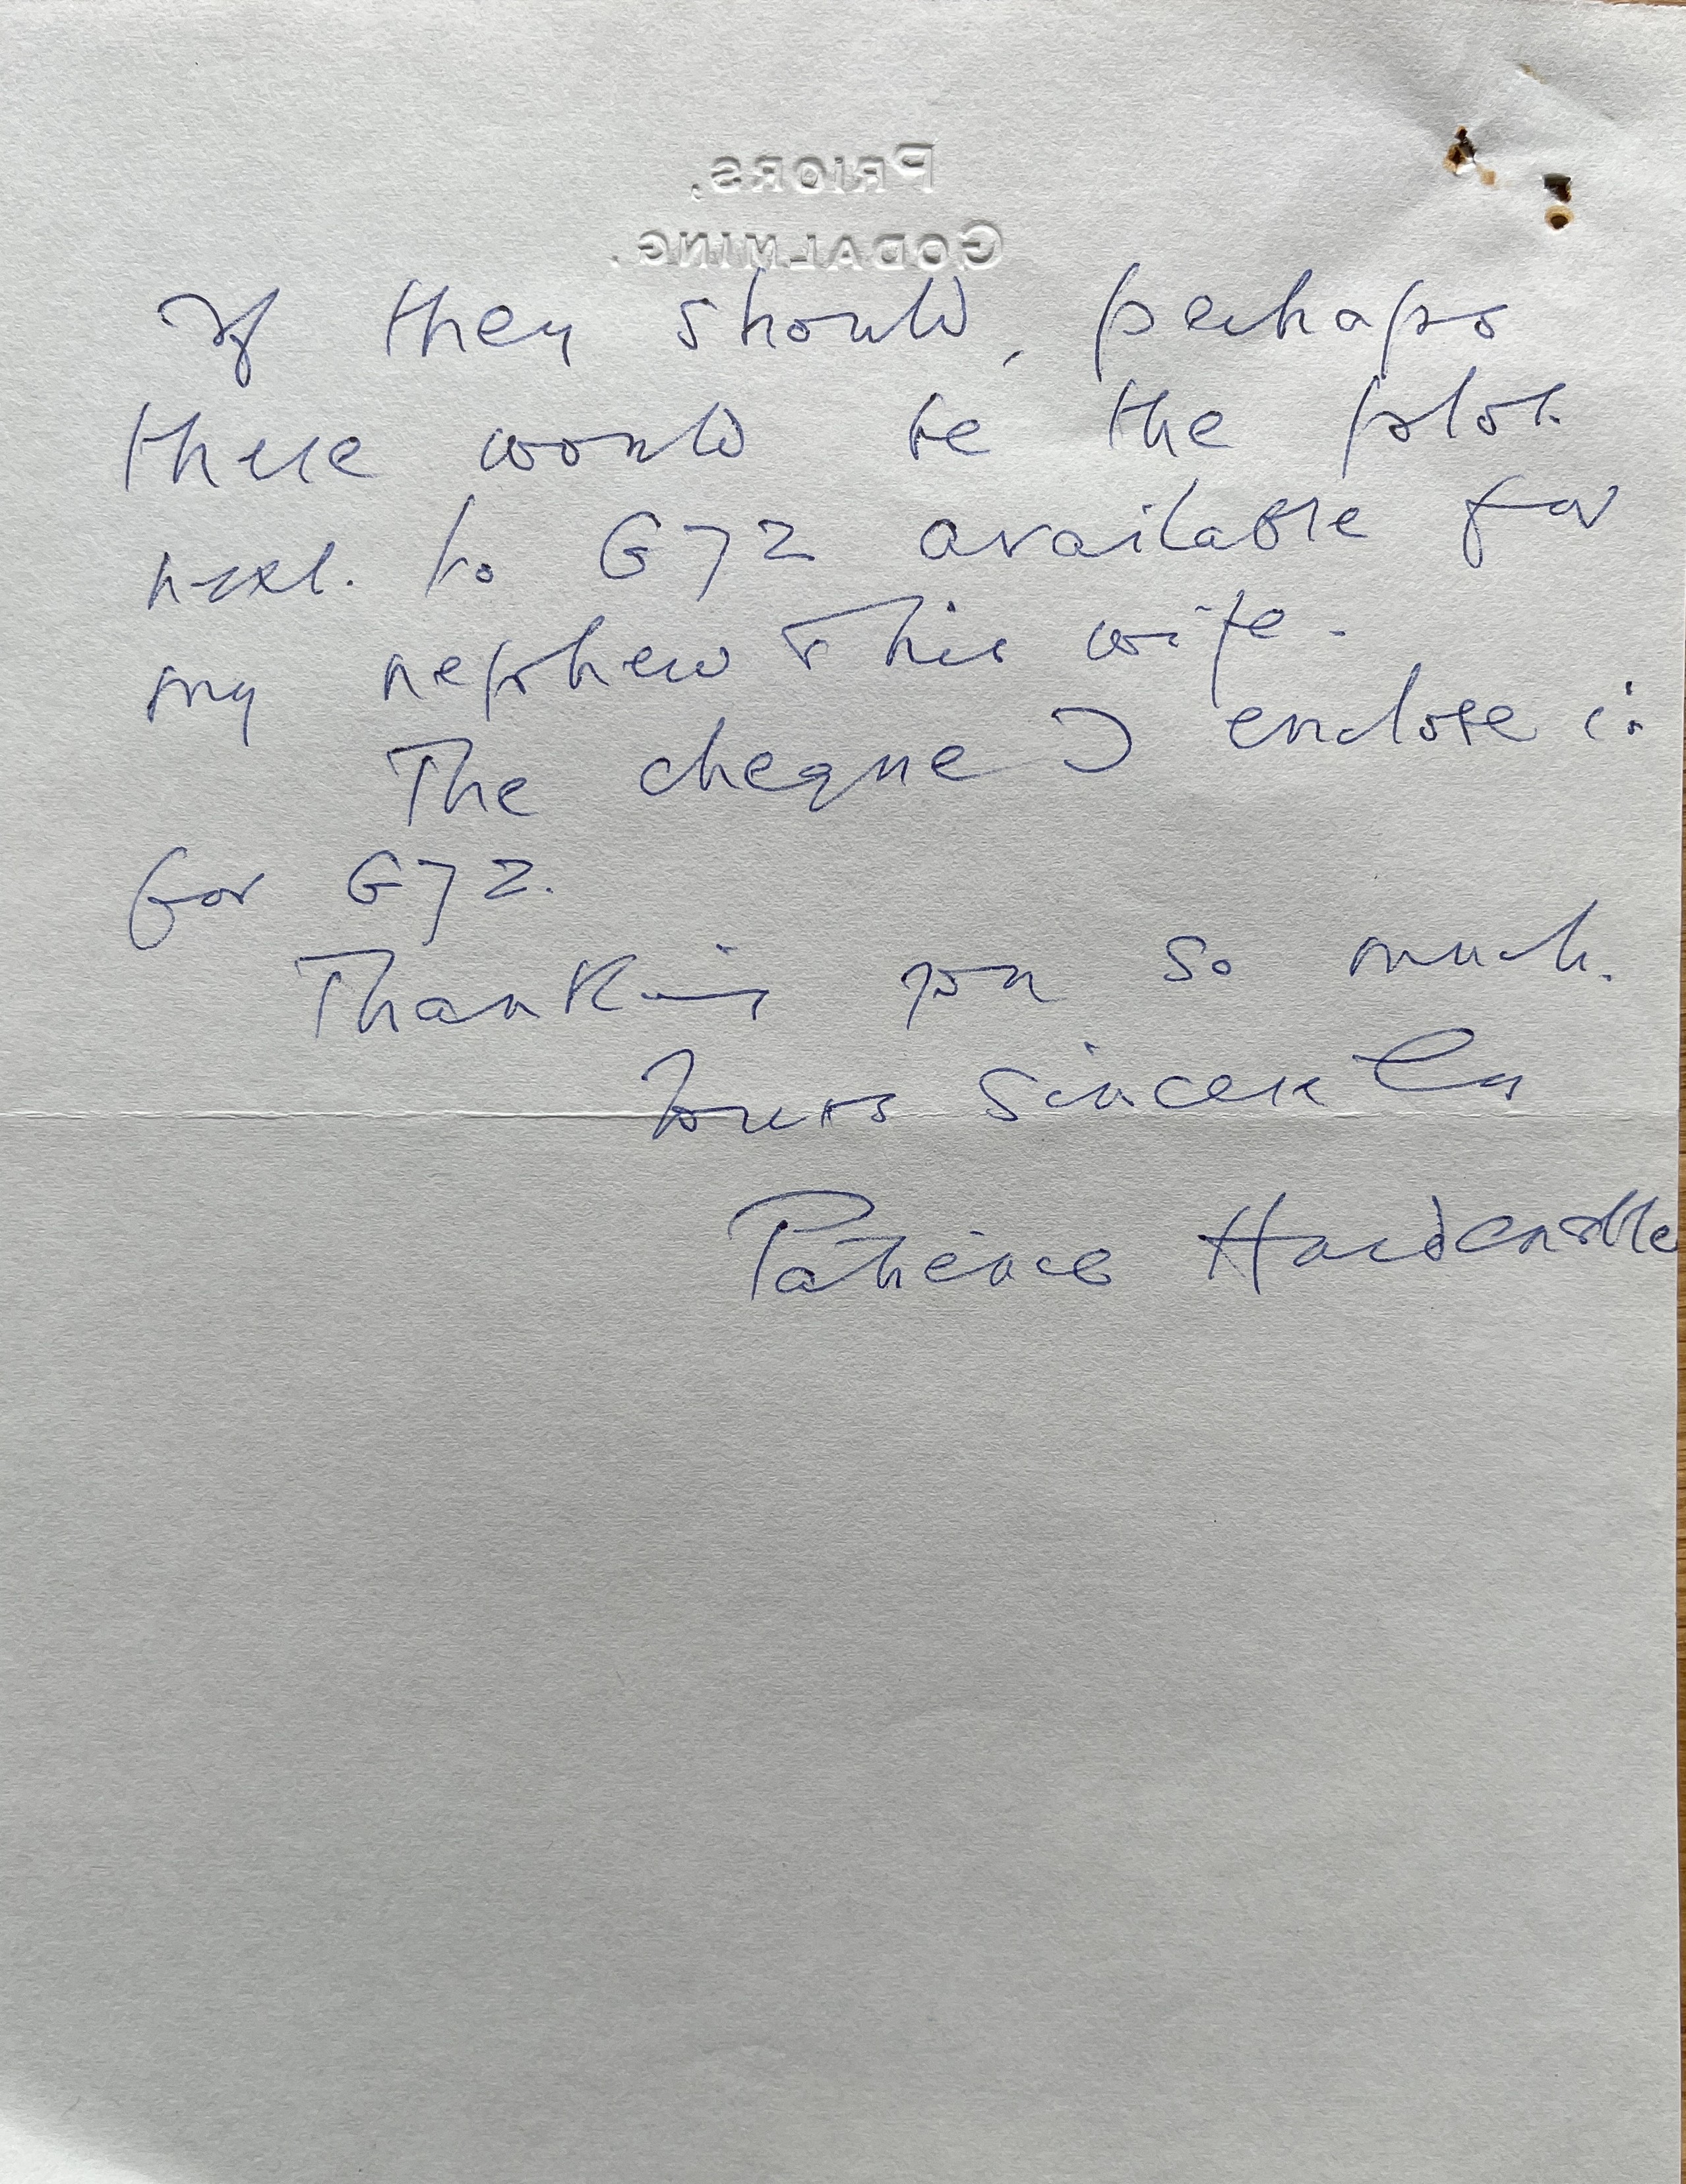 PRIORS,
GODALMING.
If they should, perhaps
there would be the plot
next to G72 available for
my nephew & his wife.
The cheque I enclose is
for G72.
Thanking you so much.
Yours sincerely
Patience Hardcastle